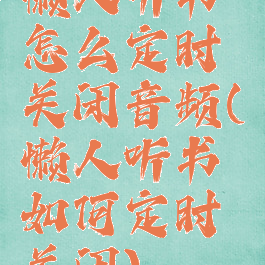 懒人听书
怎么定时
关闭音频(
懒人听书
如何定时
关闭)